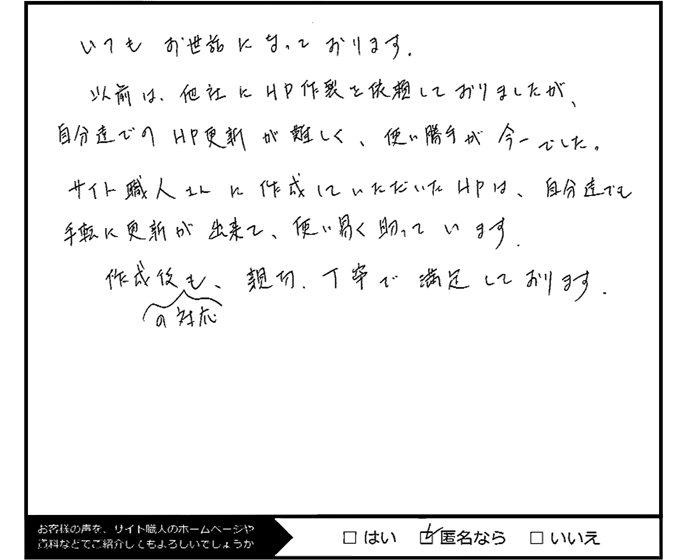 いつも お世話になっております.
以前は、他社にHP作製を依頼しておりましたが、
自分達でのHP更新が難しく、使い勝手が今一でした。
サイト職人さんに作成していただいたHPは、自分達でも
手軽に更新が出来て、使い易く助っています.
作成後も、親切、丁寧で満足しております.
の対応
お客様の声を、サイト職人のホームページや
資料などでご紹介してもよろしいでしょうか
□ はい ☑ 匿名なら □ いいえ